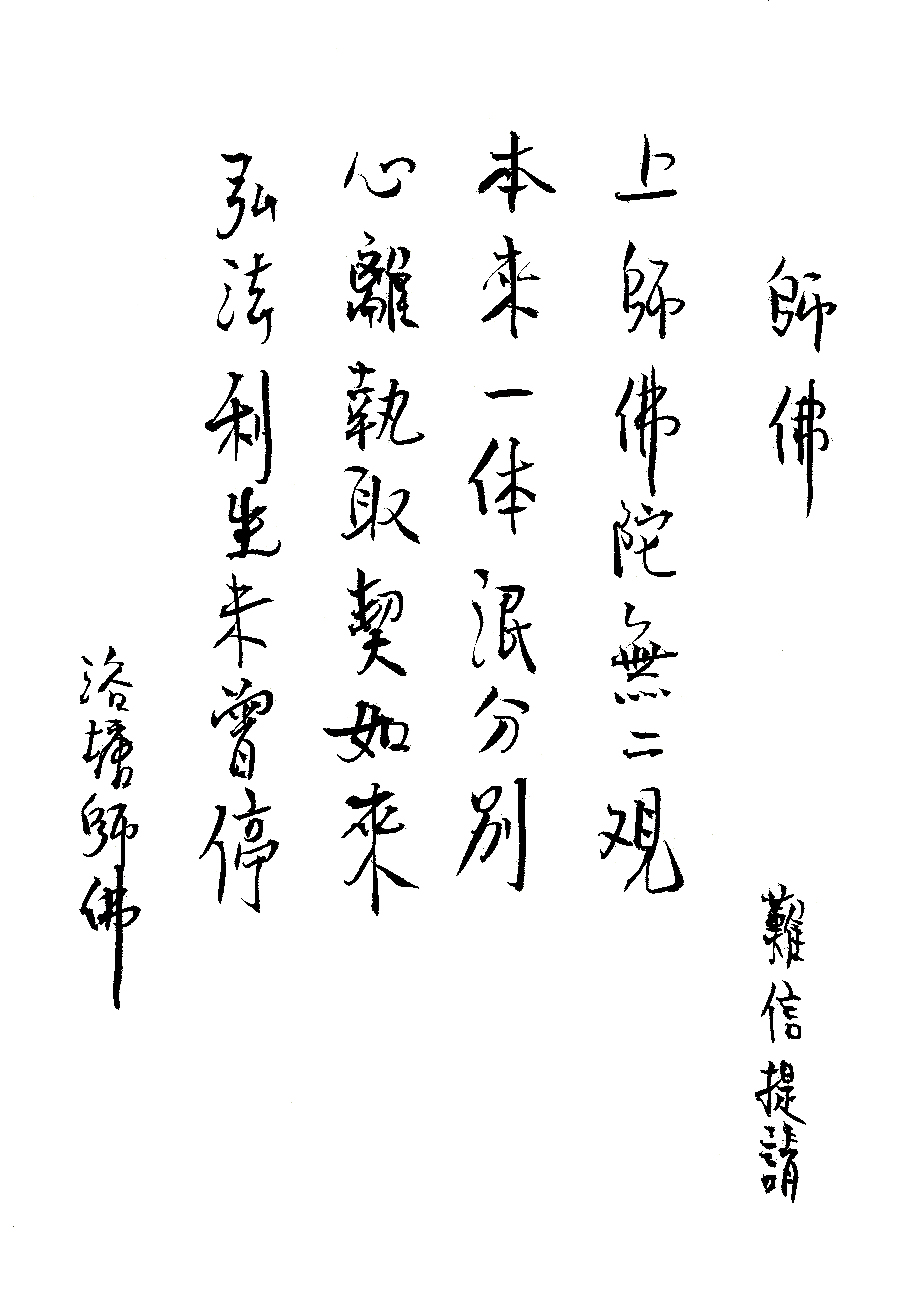 師佛
難信提請
上師佛陀無二观
本來一体泯分別
心離執取契如來
弘法利生未曾停
洛塘師佛